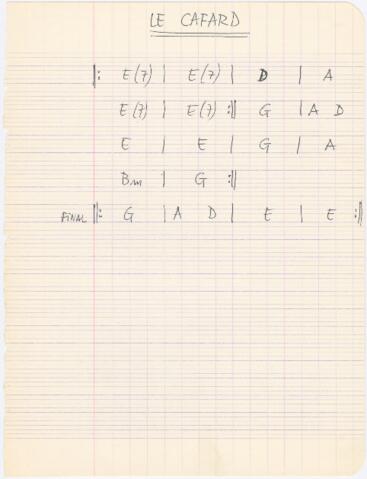 LE CAFARD
|: E(7) | E(7) | D | A
E(7) | E(7) :|| G | A D
E | E | G | A
Bm | G :||
FINAL ||: G | A D | E | E :||